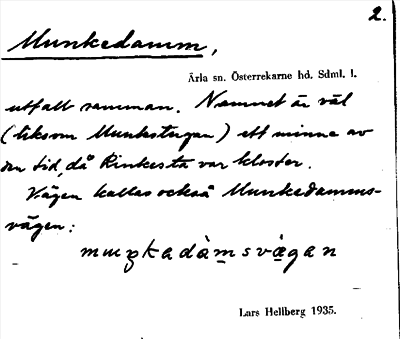 2.
Munkedamm,
Ärla sn. Österrekarne hd. Sdml. l.
utfall samman. Namnet är väl
(liksom Munkstugan) ett minne av
den tid, då Rinkesta var kloster.
Vägen kallas också Munkedamms-
vägen:
muŋkadàm̲svä̀gan
Lars Hellberg 1935.